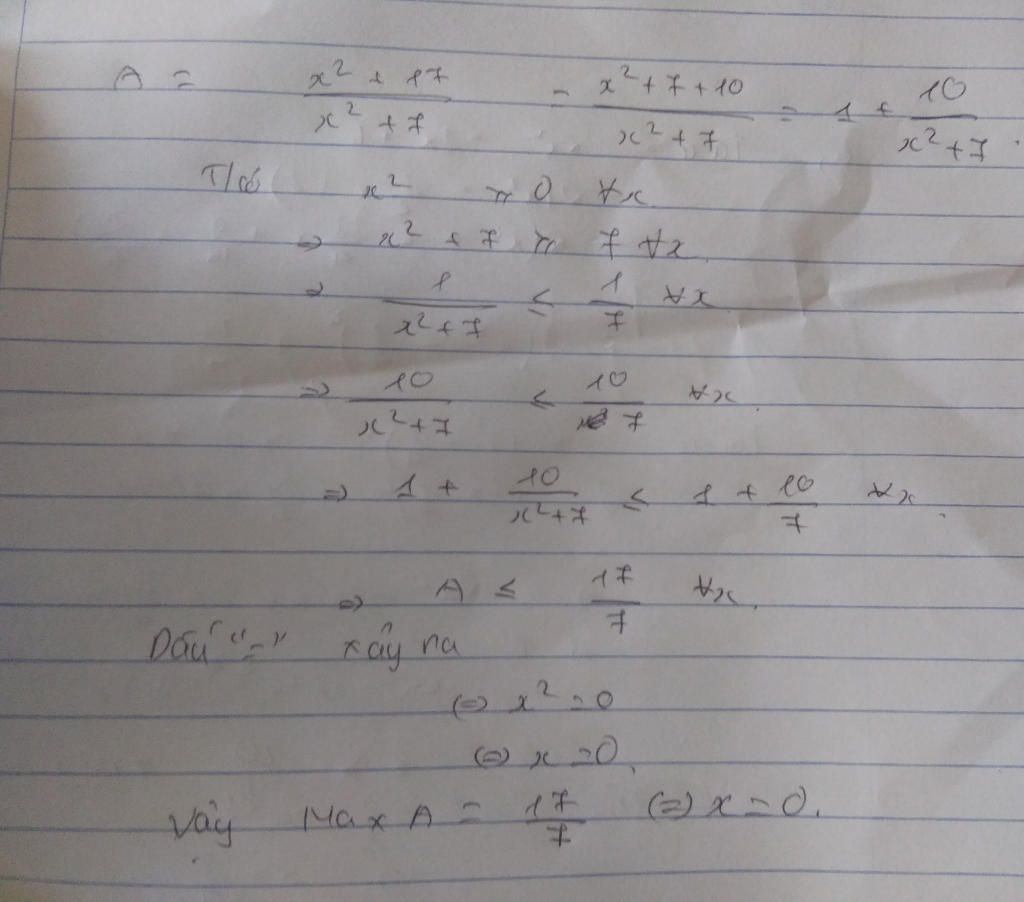 A = x² + 17 / x² + 7 = x² + 7 + 10 / x² + 7 = 1 + 10 / x² + 7.
T/có x² ≥ 0 ∀x
⇒ x² + 7 ≥ 7 ∀x.
⇒ 1 / x² + 7 ≤ 1 / 7 ∀x
⇒ 10 / x² + 7 ≤ 10 / 7 ∀x.
⇒ 1 + 10 / x² + 7 ≤ 1 + 10 / 7 ∀x.
⇒ A ≤ 17 / 7 ∀x.
Dấu "=" xảy ra
⇔ x² = 0
⇔ x = 0.
Vậy Max A = 17 / 7 ⇔ x = 0.